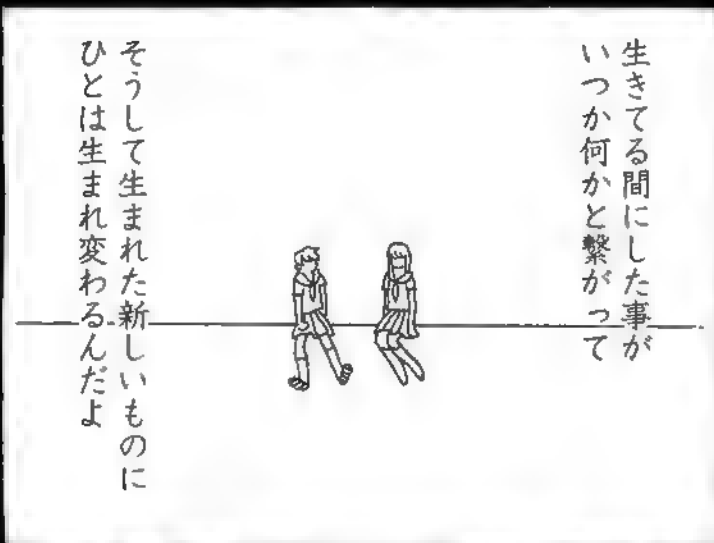 生きてる間にした事が
いつか何かと繋がって
そうして生まれた新しいものに
ひとは生まれ変わるんだよ